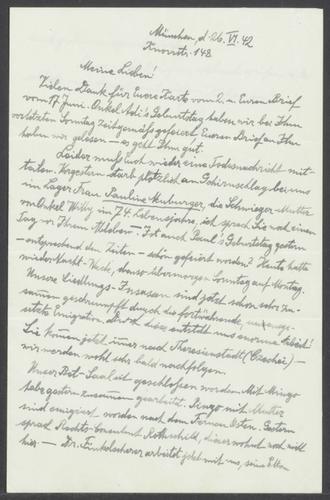 München, d. 26. VI. 42
Knorrstr. 148
Meine Lieben!
Vielen Dank für Euere Karte vom 2. u. Euren Brief
vom 17. Juni. Onkel Adi's Geburtstag haben wir bei Ihm
vorletzten Sonntag zeitgemäß gefeiert. Euren Brief an Ihn
haben wir gelesen – es geht Ihm gut.
Leider muß Euch wieder eine Todesnachricht mit-
teilen. Vorgestern starb plötzlich an Gehirnschlag bei uns
im Lager Frau Pauline Neuburger, die Schwieger-Mutter
von Onkel Willy im 74. Lebensjahre, ich sprach Sie noch einen
Tag vor Ihrem Ableben – Ist auch Paul's Geburtstag gestern
– entsprechend den Zeiten – schön gefeiert worden? Heute hatte
wieder Nacht-Wache, ebenso übermorgen Sonntag auf Montag.
Unsere Siedlungs-Insassen sind jetzt schon sehr zu-
sammen geschrumpft durch die fortwährende,
Emigration, durch diese entsteht uns enorme Arbeit!
Sie kommen jetzt immer nach Theresienstadt (Czechei) –
wir werden wohl sehr bald nachfolgen.
Unser Bet-Saal ist geschlossen worden. Mit Ringo
habe gestern zusammen gearbeitet. Ringo mit Mutter
sind emigriert worden nach dem Fernen Osten. Gestern
sprach Rechts-Consulent Rothschild, dieser wohnt noch nicht
hier – Dr. Finkelscherer arbeitet jetzt mit uns, seine Eltern